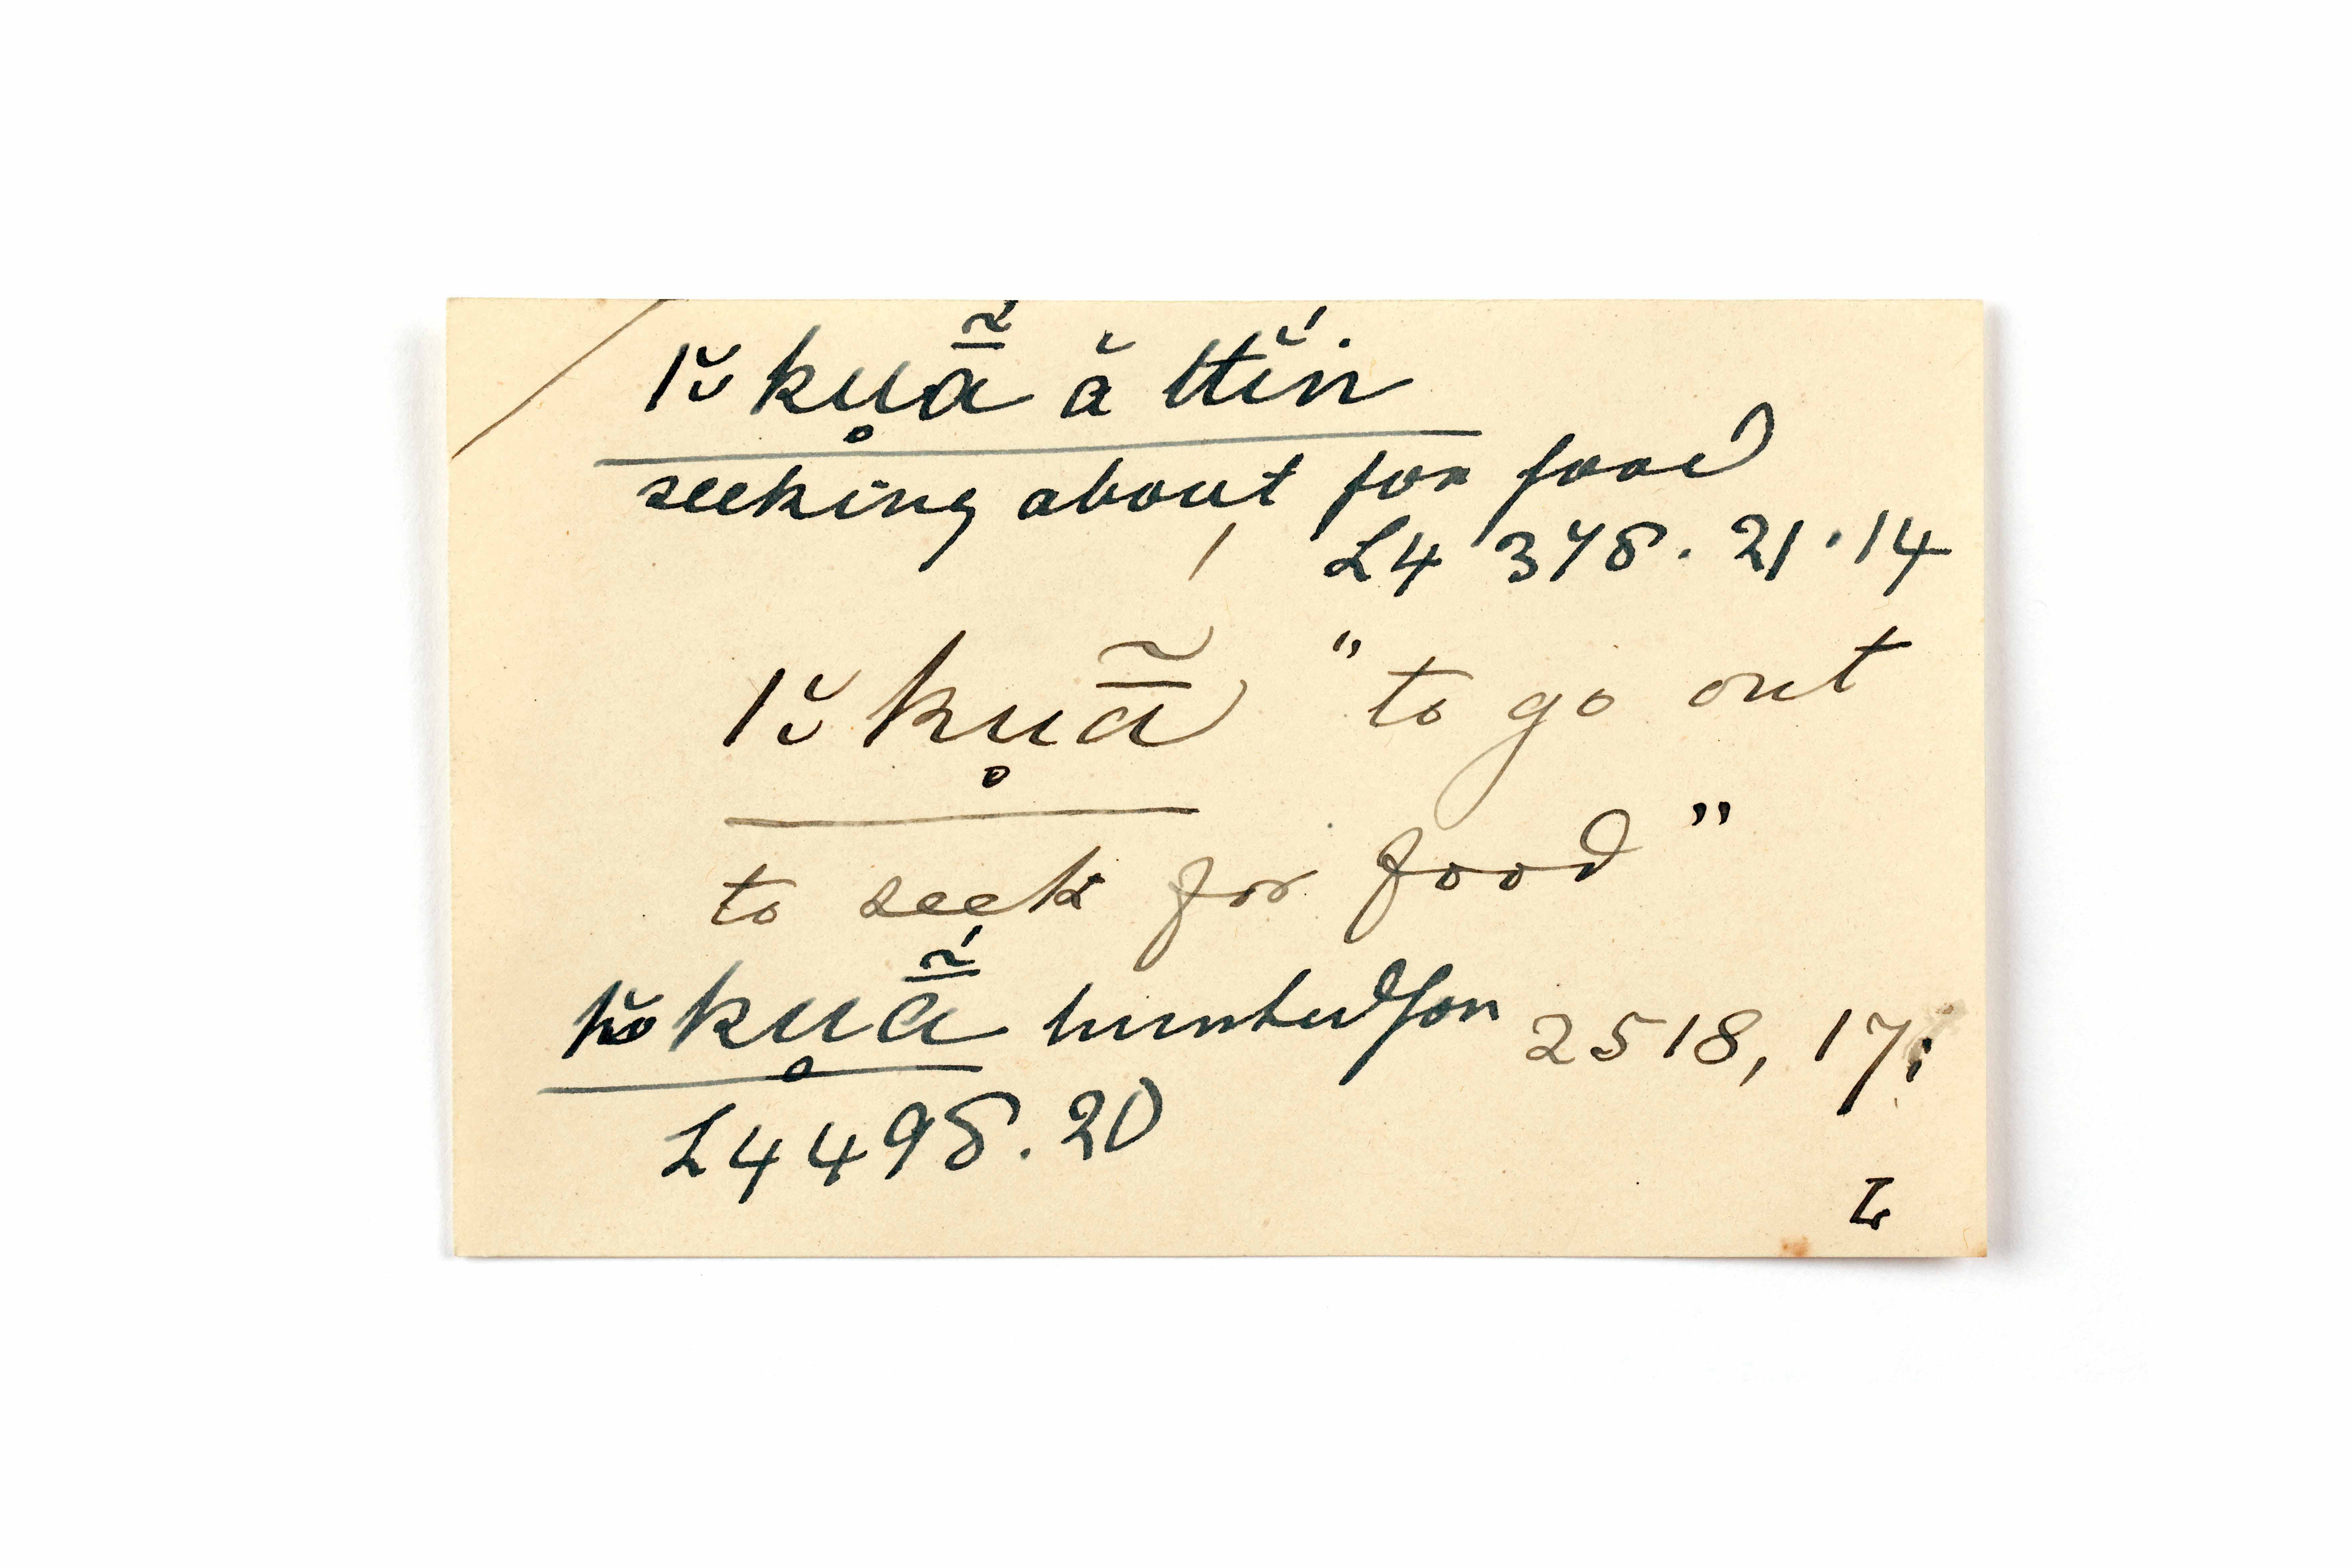 ı̆ kụ̄̃a ă ttĭ́n
seeking about for food
L4 378. 21.14
ı̆ kụ̄̃a "to go out
to seek for food"
kụ̄̃́a hunted for 2518, 17;
L4 498.20
L